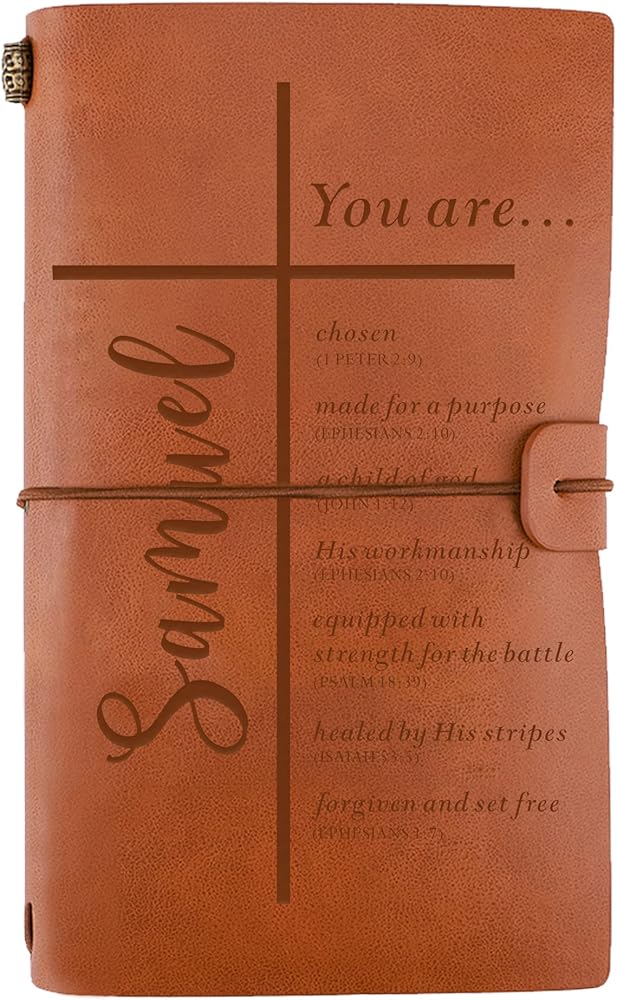 Samuel
You are...
chosen
(1 PETER 2:9)
made for a purpose
(EPHESIANS 2:10)
a child of god
(JOHN 1:12)
His workmanship
(EPHESIANS 2:10)
equipped with
strength for the battle
(PSALM 18:39)
healed by His stripes
(ISAIAH 53:5)
forgiven and set free
(EPHESIANS 1:7)